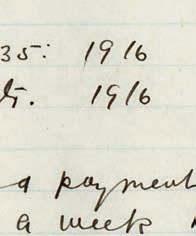 35: 1916
1916
a payment
a week